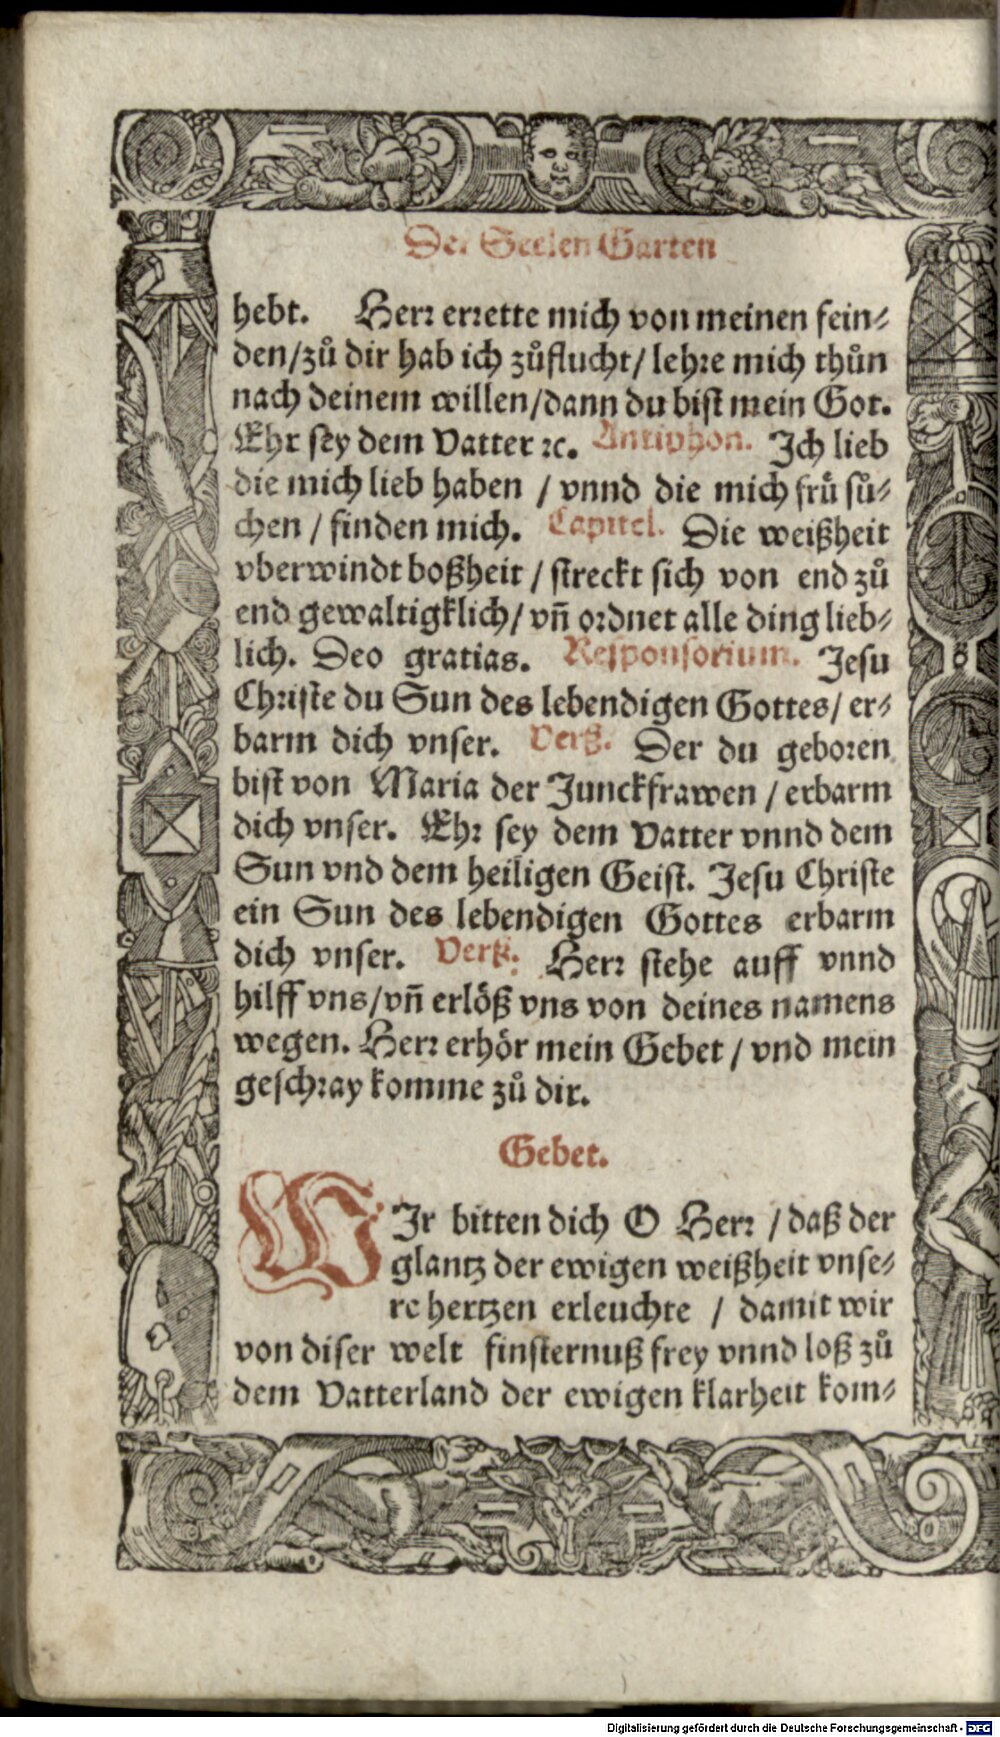 Der Seelen Garten
hebt. Herr errette mich von meinen fein⸗
den/zů dir hab ich zůflucht/ lehre mich thůn
nach deinem willen/dann du bist mein Got.
Ehr sey dem Vatter ꝛc. Antiphon. Ich lieb
die mich lieb haben / vnnd die mich frü sů⸗
chen / finden mich. Capitel. Die weißheit
vberwindt boßheit / streckt sich von end zů
end gewaltigklich/ vñ ordnet alle ding lieb⸗
lich. Deo gratias. Responsorium. Jesu
Christe du Sun des lebendigen Gottes/ er⸗
barm dich vnser. Verß. Der du geboren
bist von Maria der Junckfrawen / erbarm
dich vnser. Ehr sey dem Vatter vnnd dem
Sun vnd dem heiligen Geist. Jesu Christe
ein Sun des lebendigen Gottes erbarm
dich vnser. Verß. Herr stehe auff vnnd
hilff vns/vñ erlöß vns von deines namens
wegen. Herr erhör mein Gebet / vnd mein
geschray komme zů dir.
Gebet.
WIr bitten dich O Herr / daß der
glantz der ewigen weißheit vnse⸗
re hertzen erleuchte / damit wir
von diser welt finsternuß frey vnnd loß zů
dem Vatterland der ewigen klarheit kom⸗
Digitalisierung gefördert durch die Deutsche Forschungsgemeinschaft - DFG